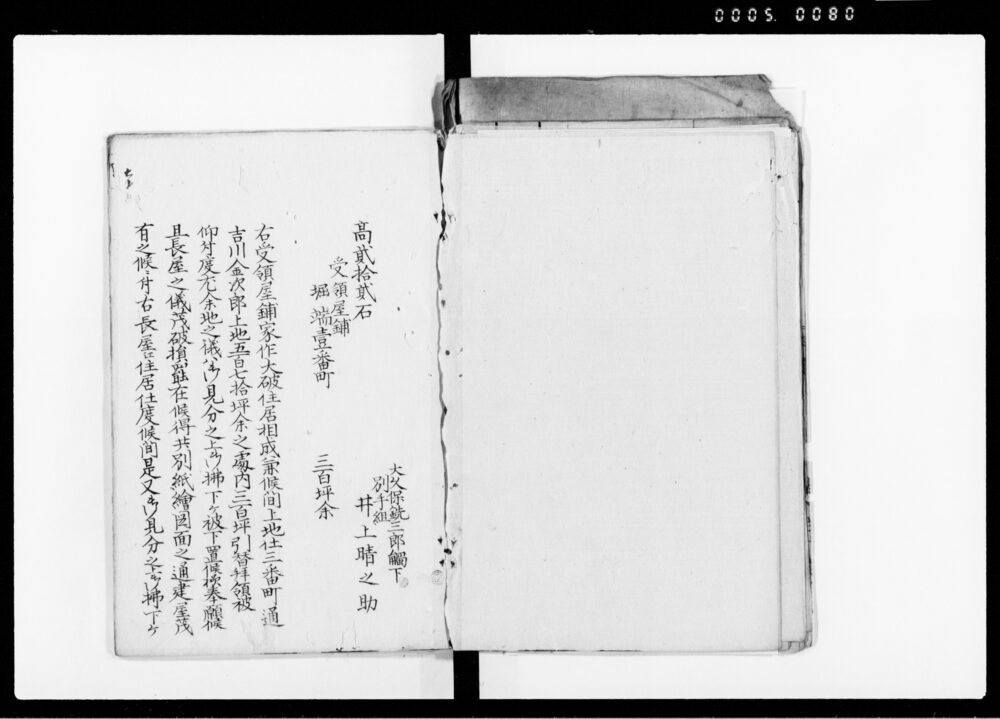 0005. 0080
大久保銃三郎觸下
別手組
井上晴之助
高貳拾貳石
受領屋鋪
堀端壹番町 三百坪余
右受領屋鋪家作大破住居相成兼候間上地仕三番町通
吉川金次郎上地五百七拾坪余之處内三百坪引替拝領被
仰付度尤余地之儀ハ御見分之上御拂下ケ被下置候様奉願候
且長屋之儀茂破損罷在候得共別紙繪図面之通建屋茂
有之候ニ付右長屋江住居仕度候間是又御見分之上御拂下ケ